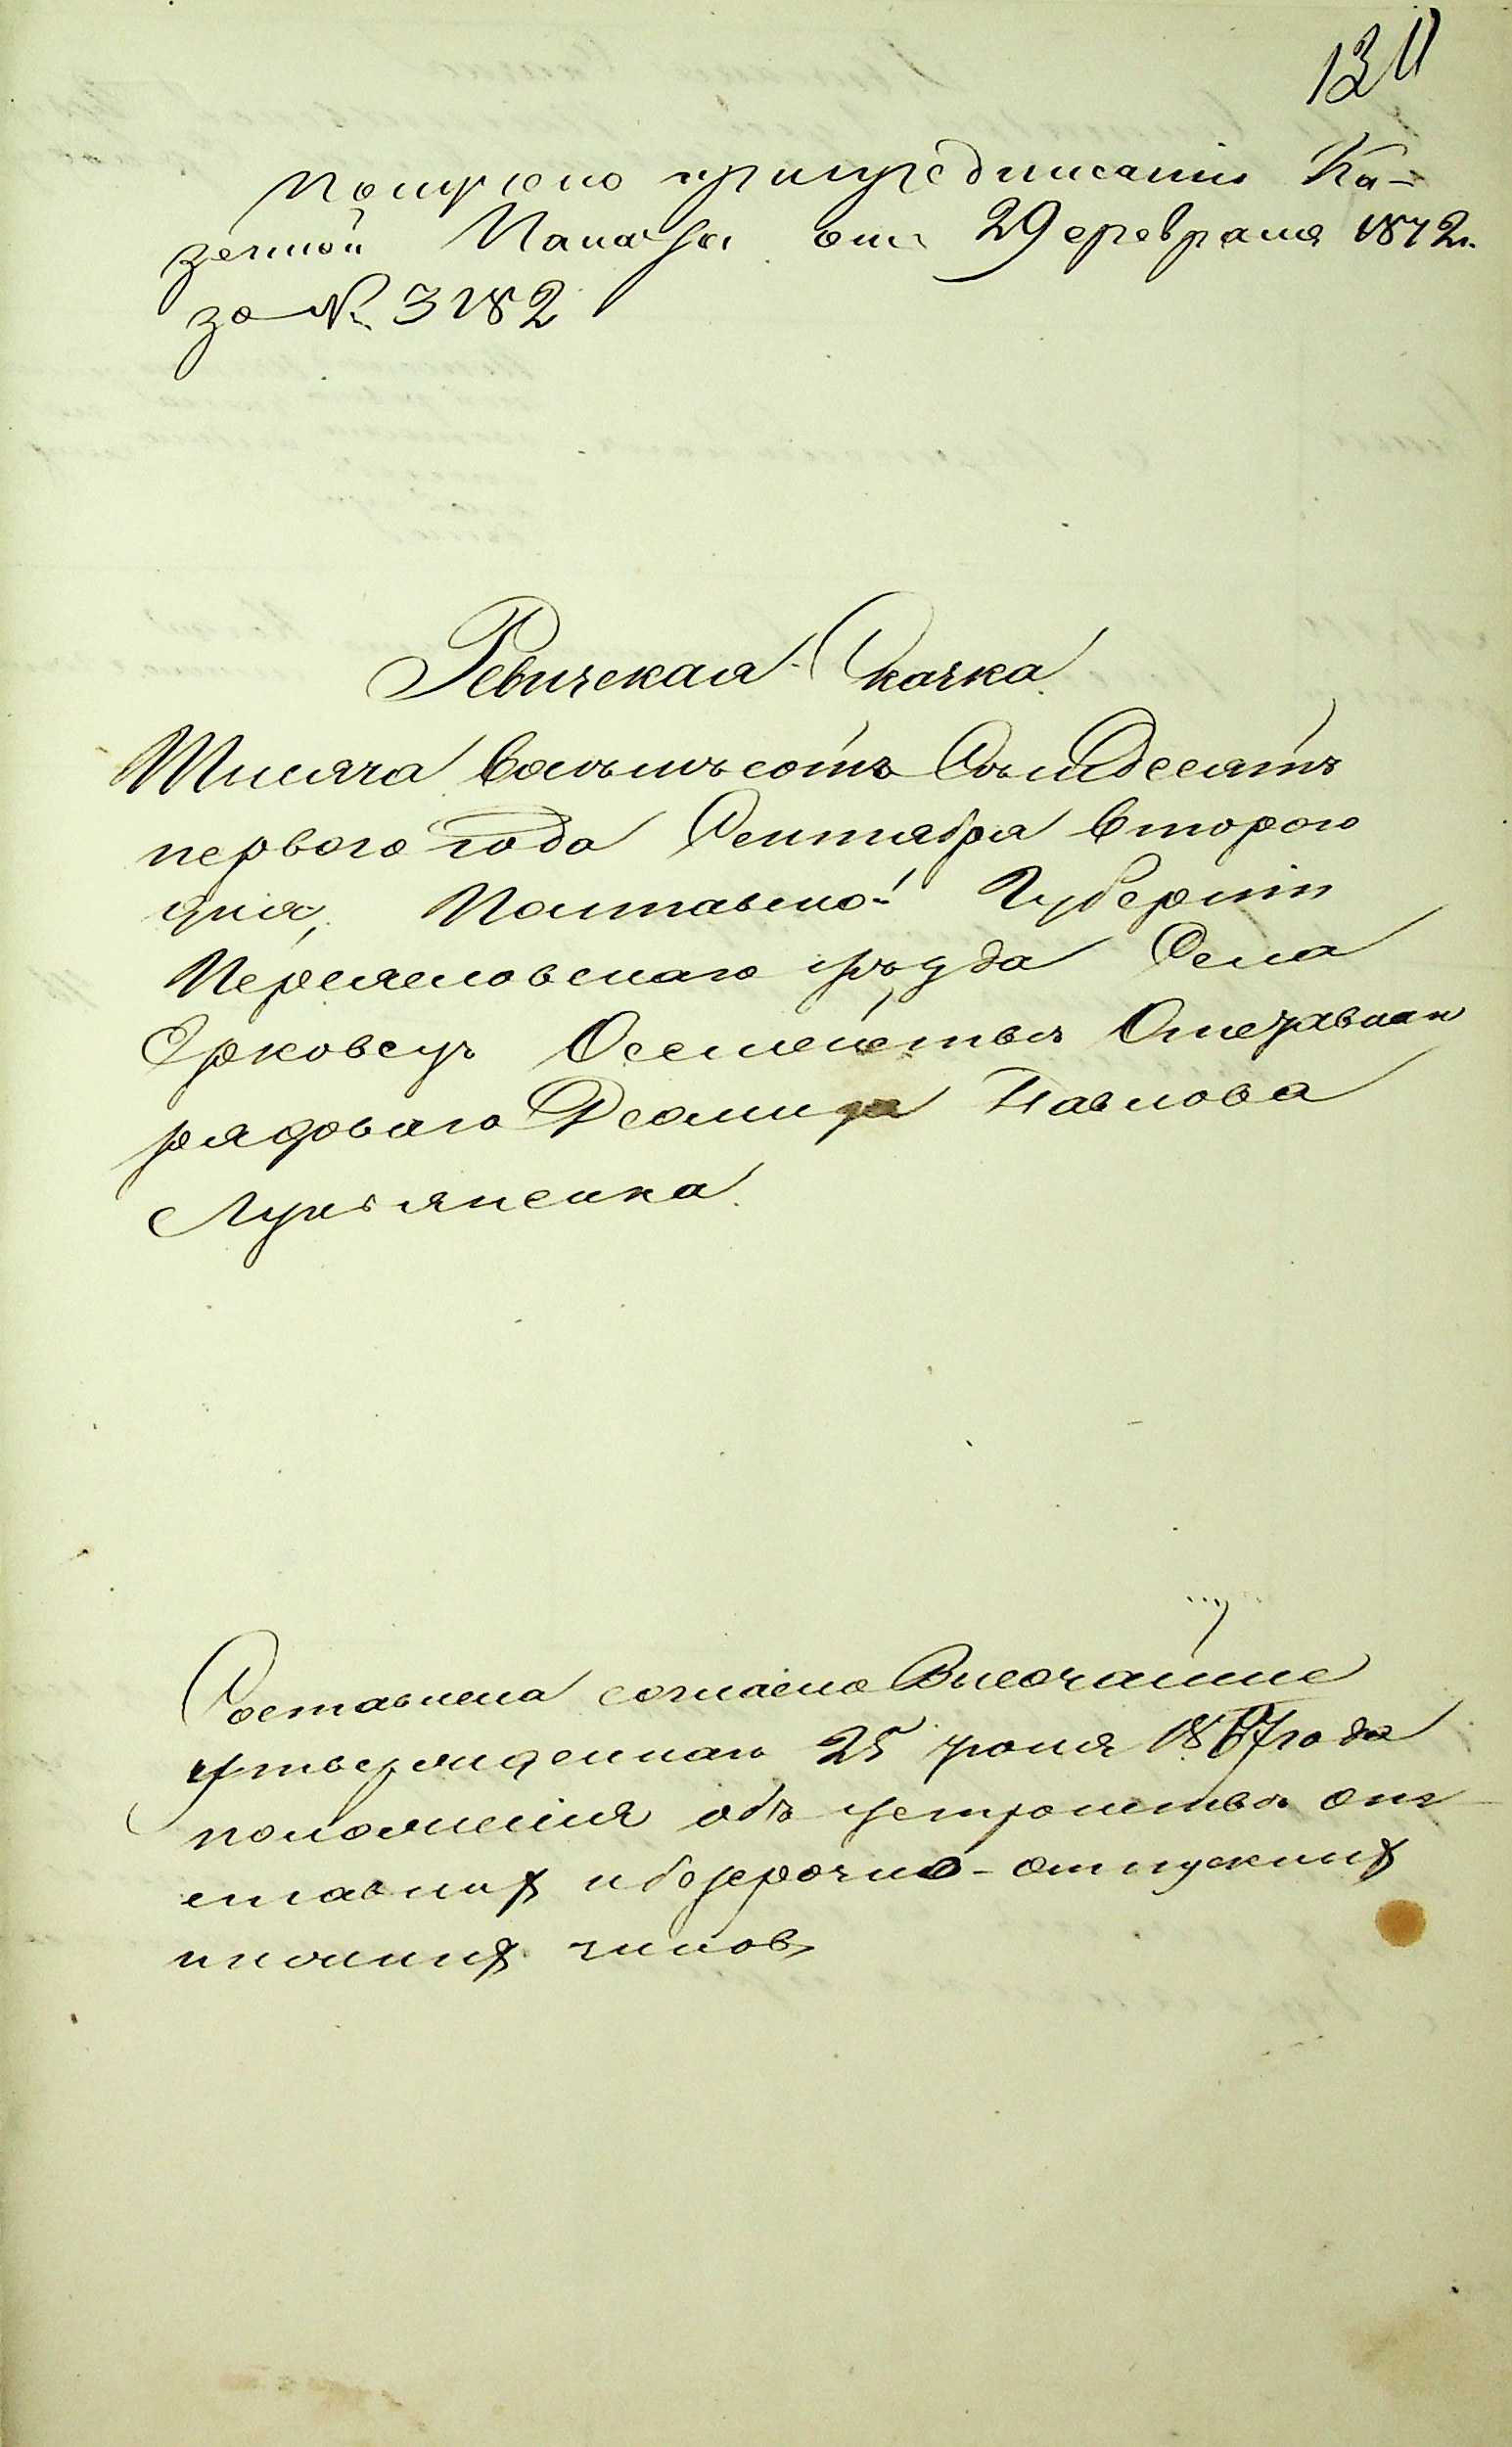 13
Получено припредписаніи Ка-
зенной Палаты отъ 29 февраля 1872 г.
за № 3182
Ревизская Сказка
Тысяча Восѣмьсотъ Семдесятъ
перваго года Сентября Второго
дня, Полтавской Губерніи
Переяславскаго уѣзда Села
Ерковецъ О семействѣ Отставнаго
рядоваго Деомида Павлова
Лукьяненка.
Составлена согласно Высочайше
утвержденнаго 25 іюня 1867 года
положенія объ устройствѣ от
ставныхъ и безсрочно-отпускныхъ
нижнихъ чиновъ